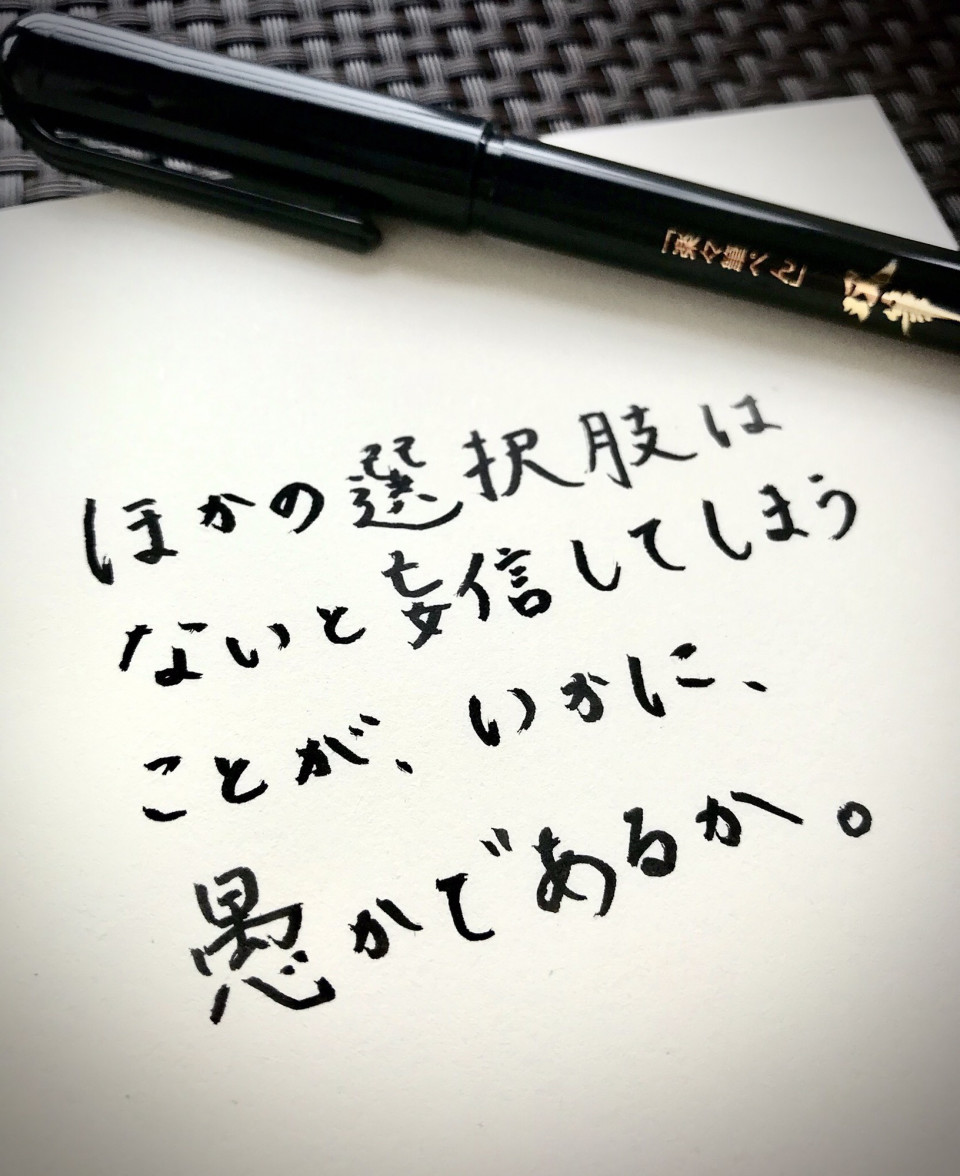 「楽々龍ぺん」
ほかの選択肢は
ないと妄信してしまう
ことが、いかに、
愚かであるか。